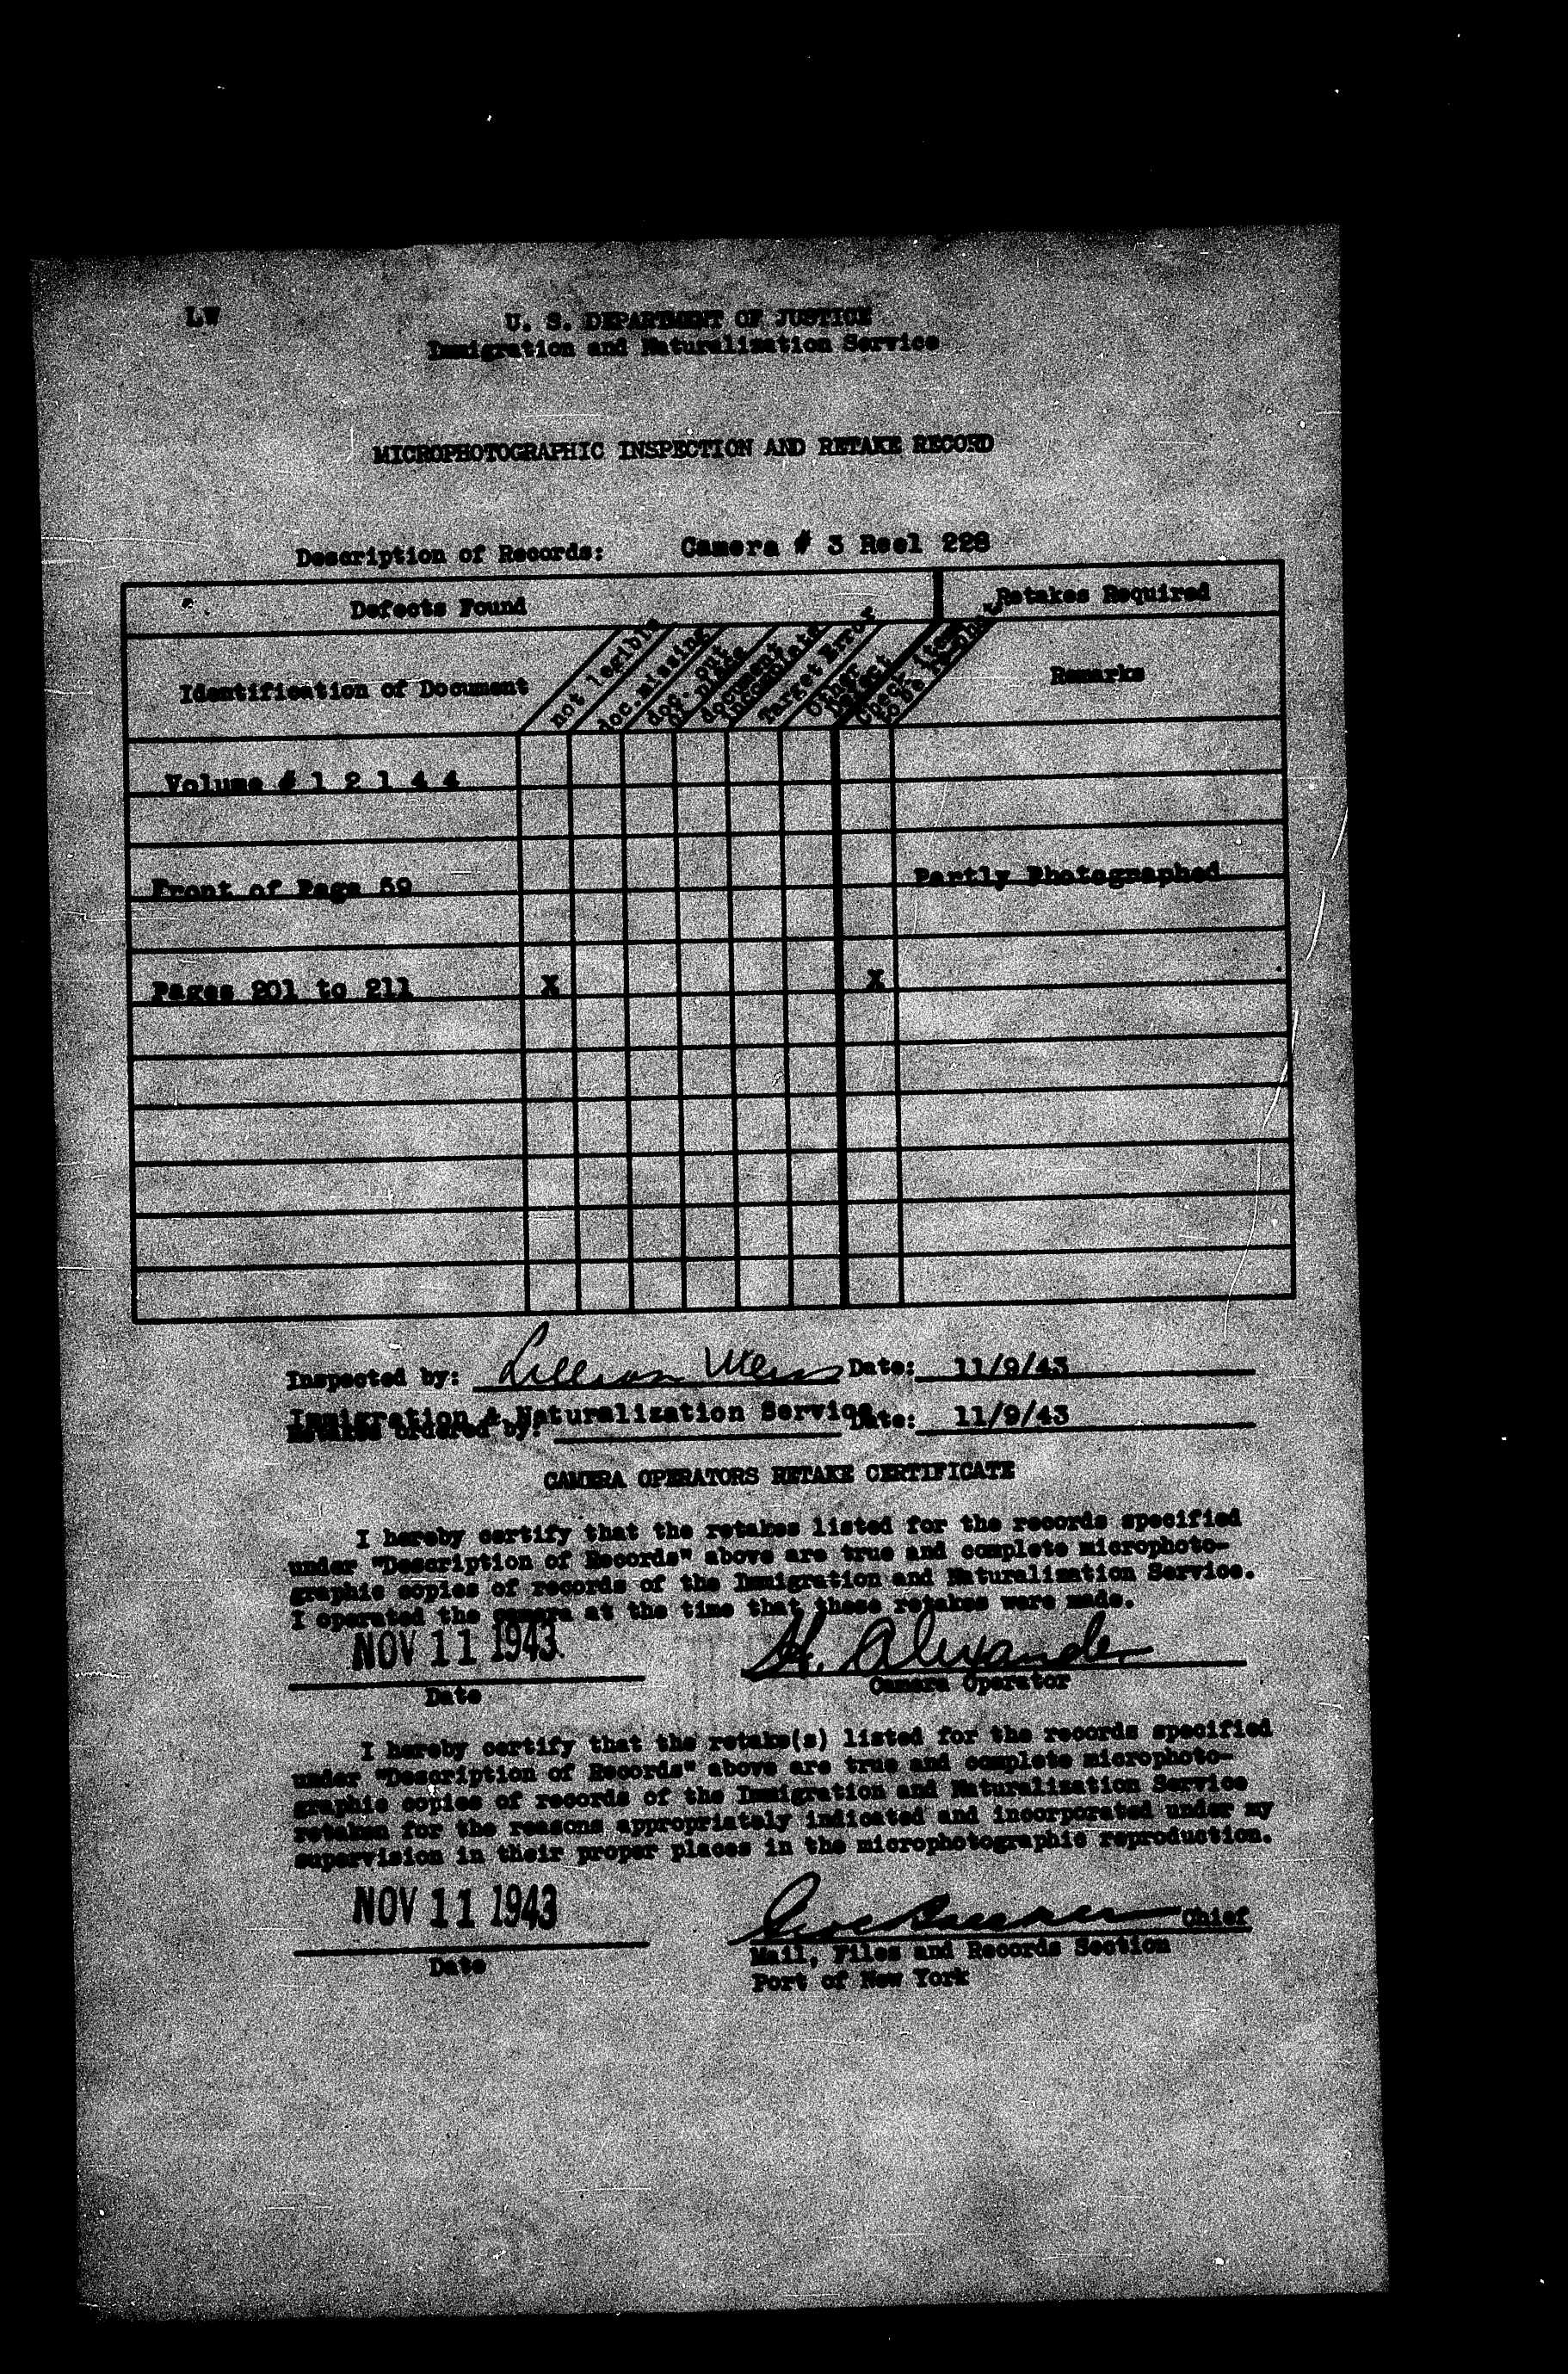 LW
U. S. DEPARTMENT OF JUSTICE
Immigration and Naturalization Service
MICROPHOTOGRAPHIC INSPECTION AND RETAKE RECORD
Description of Records: Camera # 3 Reel 228
Defects Found
Retakes Required
Identification of Document
not legible
doc. missing
doc. out of place
document incomplete
Target Error
Other Defect
Check item to be
Remarks
Volume # 1 2 1 4 4
Front of Page 59 Partly Photographed
Pages 201 to 211 X X
Inspected by: Lillian Weiss Date: 11/9/43
Immigration & Naturalization Service
Retakes ordered by: Date: 11/9/43
CAMERA OPERATORS RETAKE CERTIFICATE
I hereby certify that the retakes listed for the records specified
under "Description of Records" above are true and complete microphoto-
graphic copies of records of the Immigration and Naturalization Service.
I operated the camera at the time that these retakes were made.
NOV 11 1943 H. Alexander
Date Camera Operator
I hereby certify that the retake(s) listed for the records specified
under "Description of Records" above are true and complete microphoto-
graphic copies of records of the Immigration and Naturalization Service
retaken for the reasons appropriately indicated and incorporated under my
supervision in their proper places in the microphotographic reproduction.
NOV 11 1943 Chief
Date Mail, Files and Records Section
Port of New York